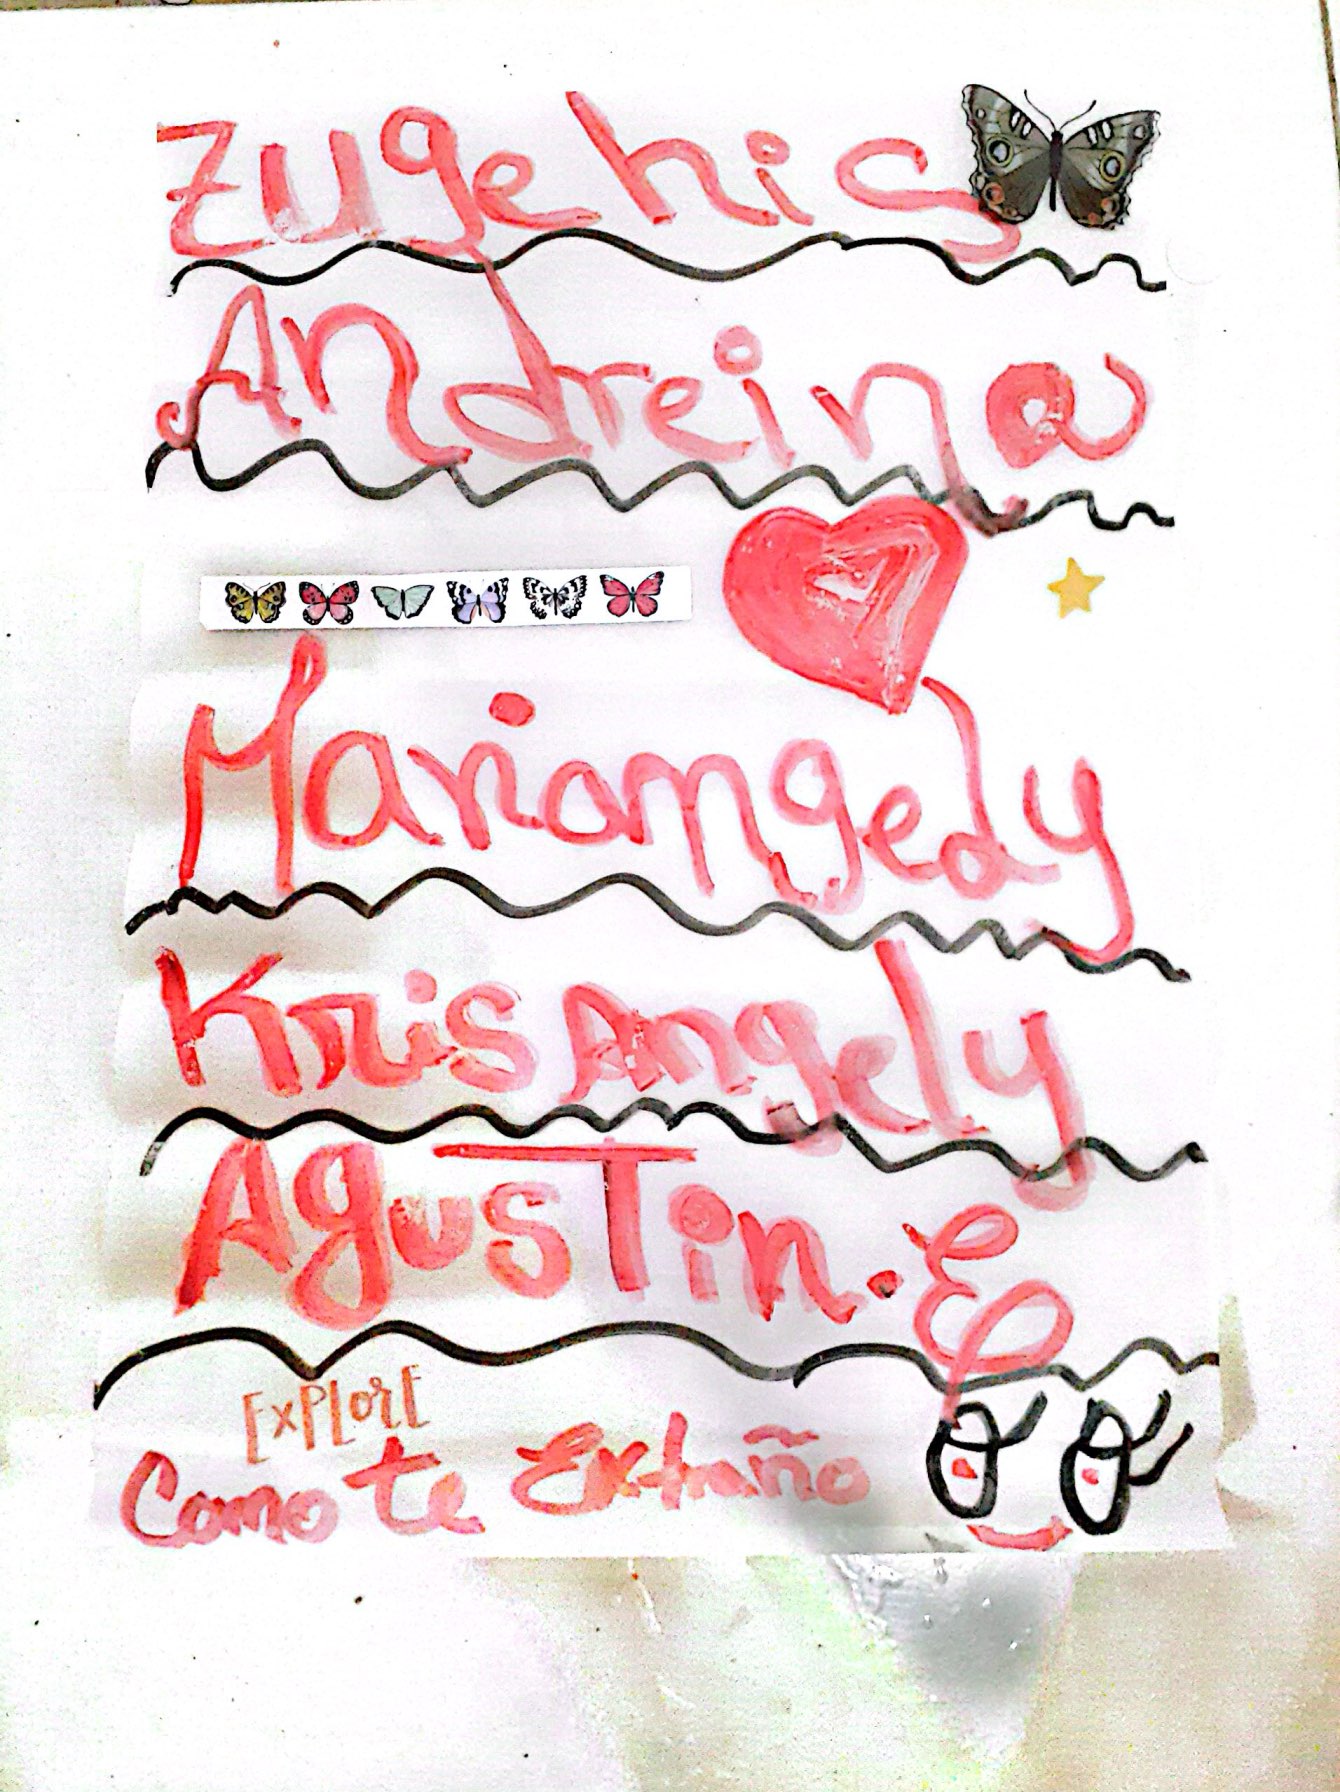 Zugehis
Andreina
Mariangedy
Kris Angely
AgusTin. E
ExPlorE
Como te Extraño